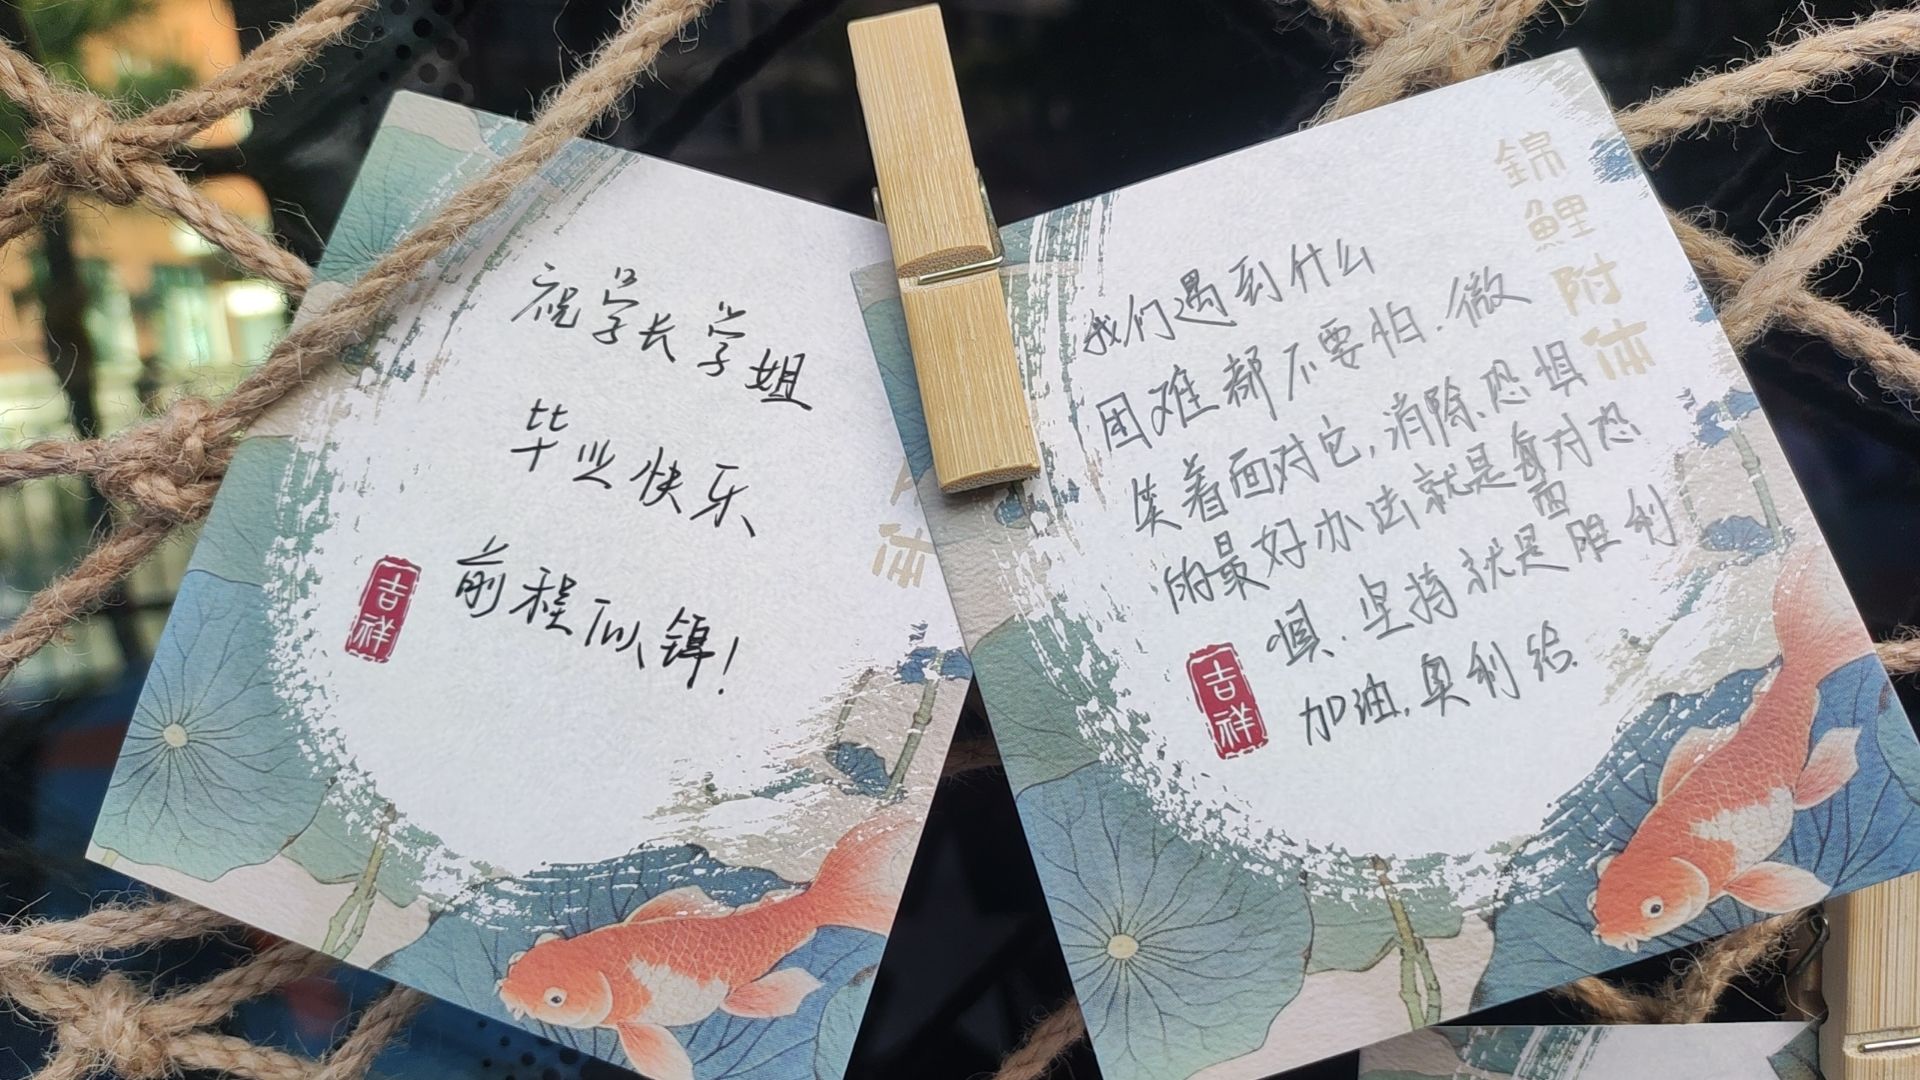 祝学长学姐
毕业快乐
前程似锦!
吉祥
附体
錦鯉附体
我们遇到什么
困难都不要怕.微
笑着面对它,消除恐惧
的最好办法就是面对恐
惧.坚持就是胜利
加油,奥利给
吉祥